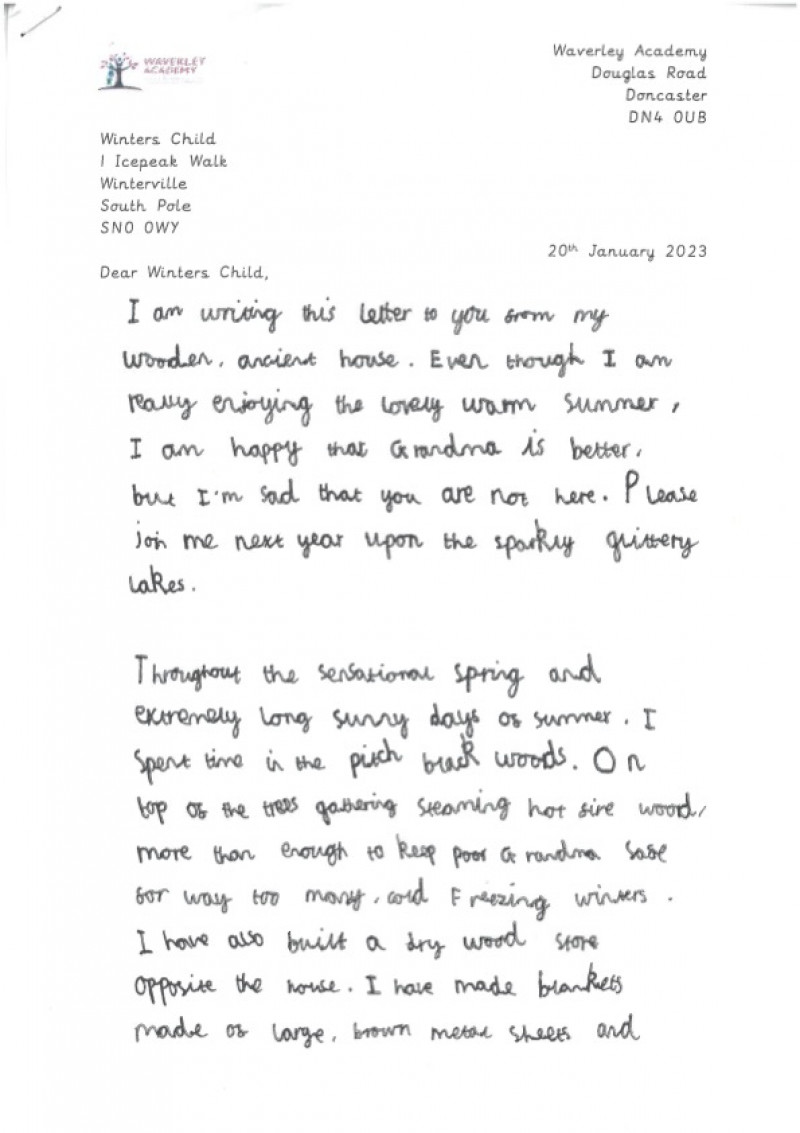 WAVERLEY
ACADEMY
Waverley Academy
Douglas Road
Doncaster
DN4 0UB
Winters Child
1 Icepeak Walk
Winterville
South Pole
SN0 0WY
20th January 2023
Dear Winters Child,
I am writing this letter to you from my
wooden, ancient house. Even though I am
really enjoying the lovely warm summer,
I am happy that Grandma is better,
but I'm sad that you are not here. Please
join me next year upon the sparkly glittery
lakes.
Throughout the sensational spring and
extremely long sunny days of summer. I
spent time in the pitch black woods. On
top of the trees gathering steaming hot fire wood,
more than enough to keep poor Grandma safe
for way too many, cold Freezing winters.
I have also built a dry wood store
opposite the house. I have made blankets
made of large, brown metal sheets and